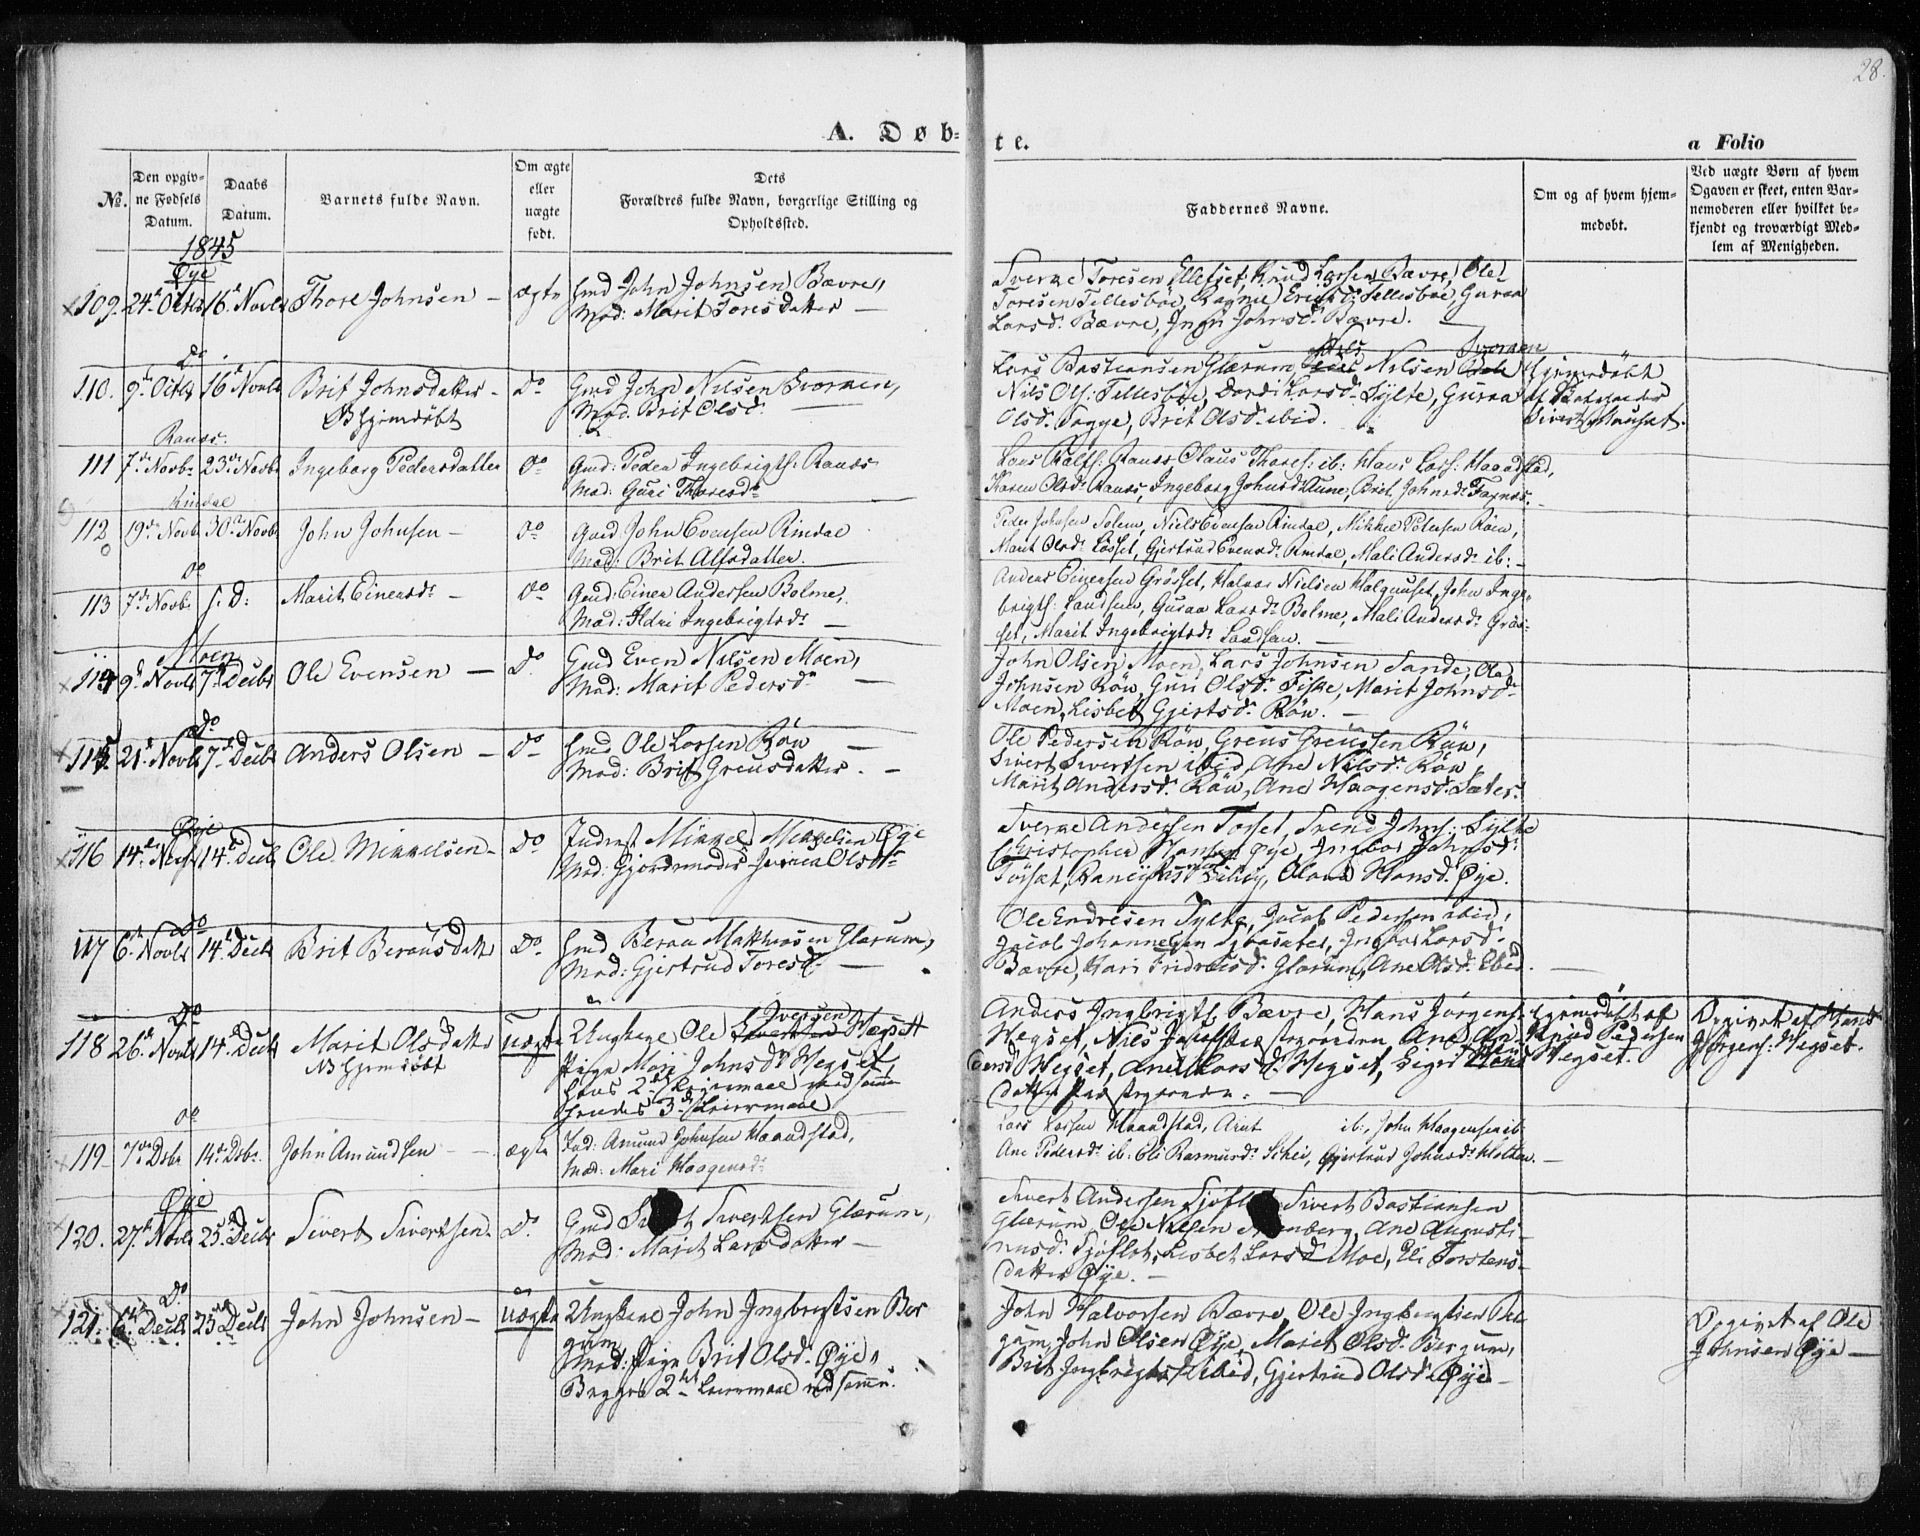 28.
A. Døb-
te.
a Folio
No.
Den opgiv-
ne Fødsels
Datum.
Daabs
Datum.
Barnets fulde Navn.
Om ægte
eller
uægte
født.
Dets
Forældres fulde Navn, borgerlige Stilling og
Opholdssted.
Faddernes Navne.
Om og af hvem hjem-
medøbt.
Ved uægte Børn af hvem
Opgaven er skeet, enten Bar-
nemoderen eller hvilket be-
kjendt og troværdigt Med-
lem af Menigheden.
1845
Øye
109. 24de Octbr 16de Novbr Thore Johnsen — ægte Gmd John Johnsen Bævre,
Mod: Marit Toresdatter —
Sverke Toresen Ellefset, Knud Larsen Bævre, Ole
Toresen Tellesbøe, Ragne Ericsd: Tellesbøe, Guraa
Larsd. Bævre, Johnsd. Bævre.
Do
110. 9de Octbr 16de Novbr Brit Johnsdatter — Do Gmd John Nilsen Svormen,
NB Hjemdøbt
Mod. Brit Olsd.
Lars Bastiansen Glærum, Nils Nilsen Svormen
Nils Ols: Tellesbøe, Dordi Larsd. Sylte, Guraa
Olsd. Togye, Brit Olsd. ibid.
Hjemdøbt
af
Sivert Mauset.
Ranæs.
111 7de Novbr 23de Novbr Ingeborg Pedersdatter Do Gmd: Peder Ingebrigts: Ranæs
Mod: Guri Thoresdr
Lars Ranæs Claus Thores: ib: Hans Lars: Haandstad,
Karen Olsdr Ranæs, Ingeborg Johnsdr Aune, Brit Johnsdr
Rindal
112 19de Novbr 30te Novbr John Johnsen — Do Gmd John Evensen Rindal
Mod: Brit Alfsdatter.
Peder Johnsen Solem, Niels Evensen Rindal, Mikkel Petersen Røen,
Marit Olsdr Løsset, Gjertrud Evensdr Rindal, Mali Andersdr ib: —
Do
113 7de Novbr s. D: Marit Einersdr — Do Gmd: Einer Andersen Bolme,
Mod: Ildri Ingebrigtsdr —
Anders Einersen Grøsset, Halvor Nielsen Halgunset, John Inge-
brigts: Landsem, Guraa Larsdr Bolme, Mali Andersdr Grøs-
set, Marit Ingebrigtsdr Landsem. —
Moen
114 9de Novbr 7de Decbr Ole Evensen — Do Gmd Even Nilsen Moen,
Mod: Marit Pedersdr —
John Olsen Moen, Lars Johnsen Sande, Ole
Johnsen Røw, Guri Olsd. Fiske, Marit Johnsdr
Moen, Lisbet Gjertsd. Røw. —
Do
115. 21de Novbr 7de Decbr Anders Olsen — Do Gmd Ole Larsen Røw —
Mod: Brit Greusdatter. —
Ole Pedersen Røw, Greus Greussen Røw,
Sivert Sivertsen ibid, Ane Nilsd. Røw,
Marit Andersd. Røw, Ane Haagensd. Sæter.
Øye
116 14de 14de Decbr Ole Mikkelsen — Do Inderst Mikkel Mikkelsen Øye
Mod: Gjordemoder Olsdr
Sverke Andersen Torset, Svend Johns: Sylte
Christopher Hansen Øye, Ingbor Johnsdr
Torset, Olava Hansd. Øye.
Do
117 6te Novbr 14de Decbr Brit Berausdatter Do Gmd Berau Matthiasen Glærum,
Mod: Gjertrud Toresd. —
Ole Endresen Sylte, Jacob Pedersen ibid,
Jacob Johannesen, Ingbor Larsdr
Bævre, Kari Fridriksd. Glærum, Ane Olsd. Ibid. —
Do
118 26de Novbr 14de Decbr Marit Olsdatter uægte Ungkarl Ole Iversen Hegset
NB Hjemdøbt
Pige Mari Johnsdr Hegset,
hans 2det Leiermaal med samme
hendes 3de Leiermaal
Anders Ingbrigts. Bævre, Hans Jørgens.
Hegset, Nils, Ane An-
dersd Hegset, Ane Larsd. Hegset,
datter
Hjemdøbt af
Knud Pedersen
Hegset.
Opgivet af Hans
Jørgens: Hegset.
Do
119 7de Dcbr 14de Dcbr. John Amundsen — ægte Ind: Amund Johnsen Haandstad,
Mod: Mari Haagensdr
Lars Larsen Haandstad, Arnt ib:, John Haagensen ib:
Ane Pedersdr ib: Eli Rasmusdr Schei, Gjertrud Johnsdr Holten. —
Øye
120. 27de Novbr 25de Decbr Sivert Sivertsen. Do Gmd Sivertsen Glærum,
Mod: Marit Larsdatter —
Sivert Andersen Sjøflot, Sivert Bastiansen
Glærum, Ole Nilsen, Ane Augusti-
nusd. Sjøflot, Lisbet Larsd Moe, Eli Torstens-
datter Øye. —
Do
121. 6te Decbr 25de Decbr John Johnsen — uægte Ungkarl John Ingbrigtsen Ber
gum
Mod: Pige Brit Olsd. Øye,
Begges 2det Leiermaal ved samme.
John Halvorsen Bævre, Ole Ingbrigtsen Ber
gum, John Olsen Øye, Marit Olsd. Bergum,
Brit Ingbrigtsd ibid, Gjertrud Olsd. Øye —
Opgivet af Ole
Johnsen Øye —